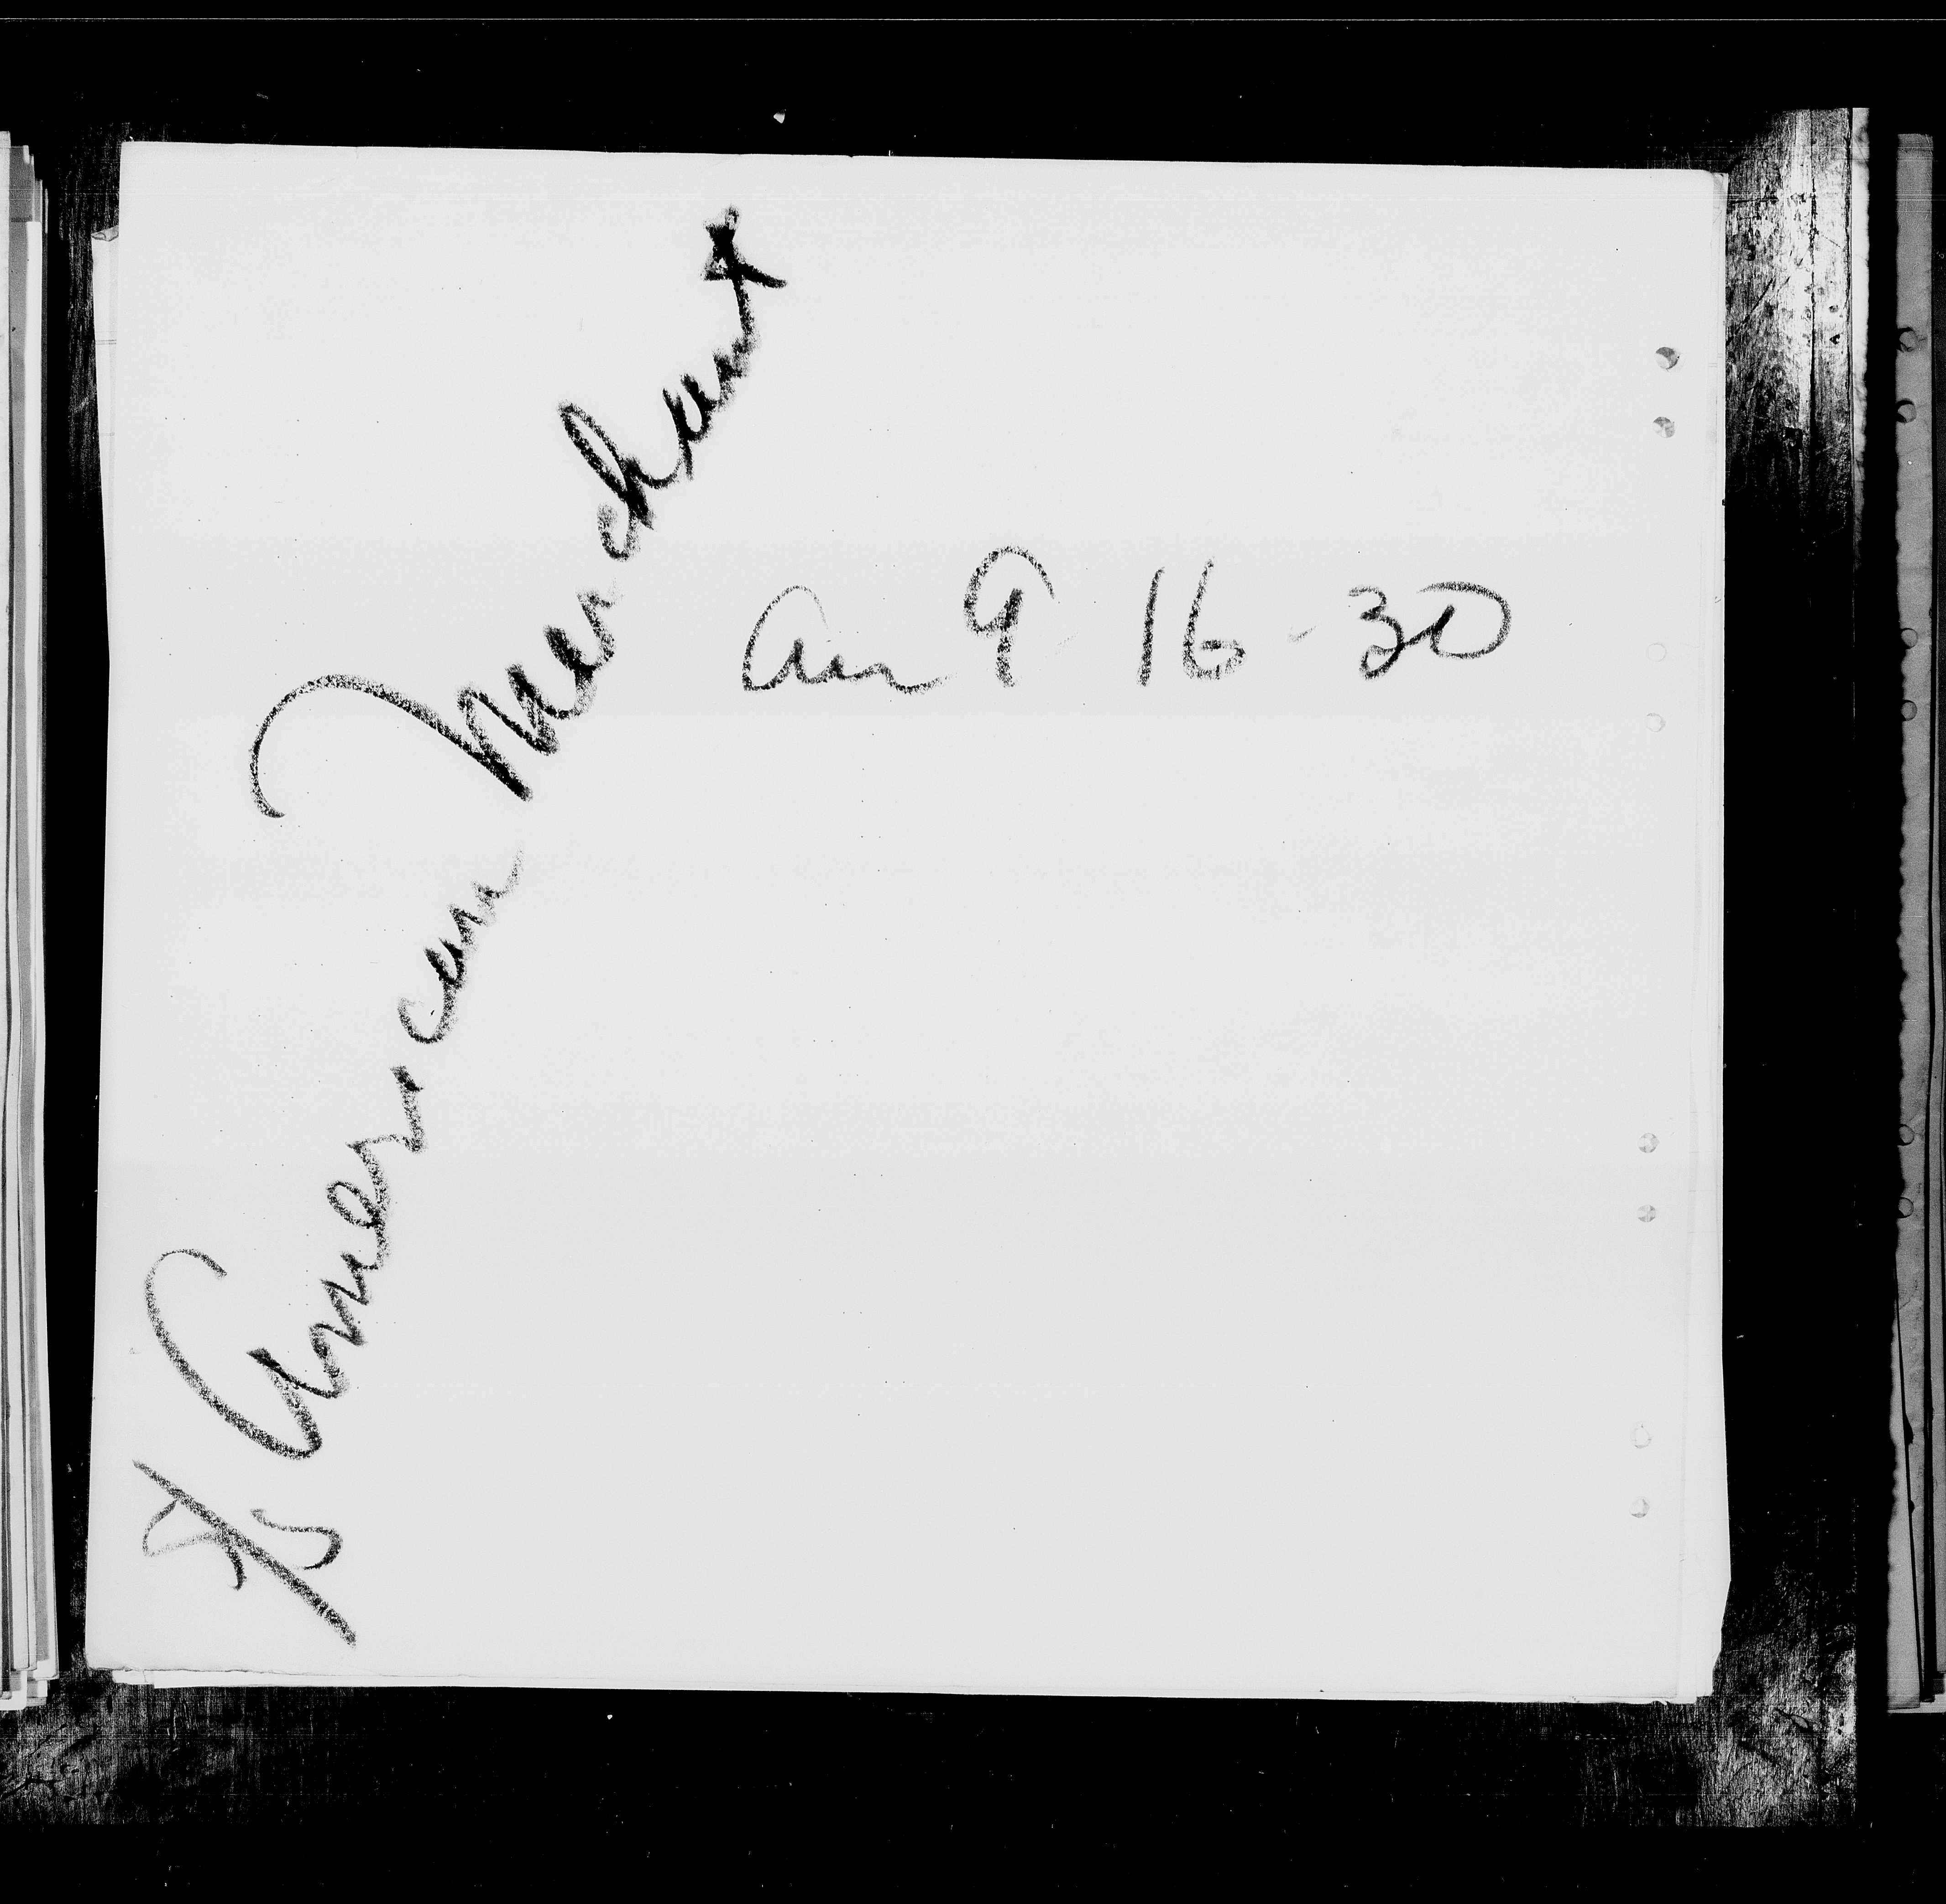 S/S American Merchant
Aug 16-30